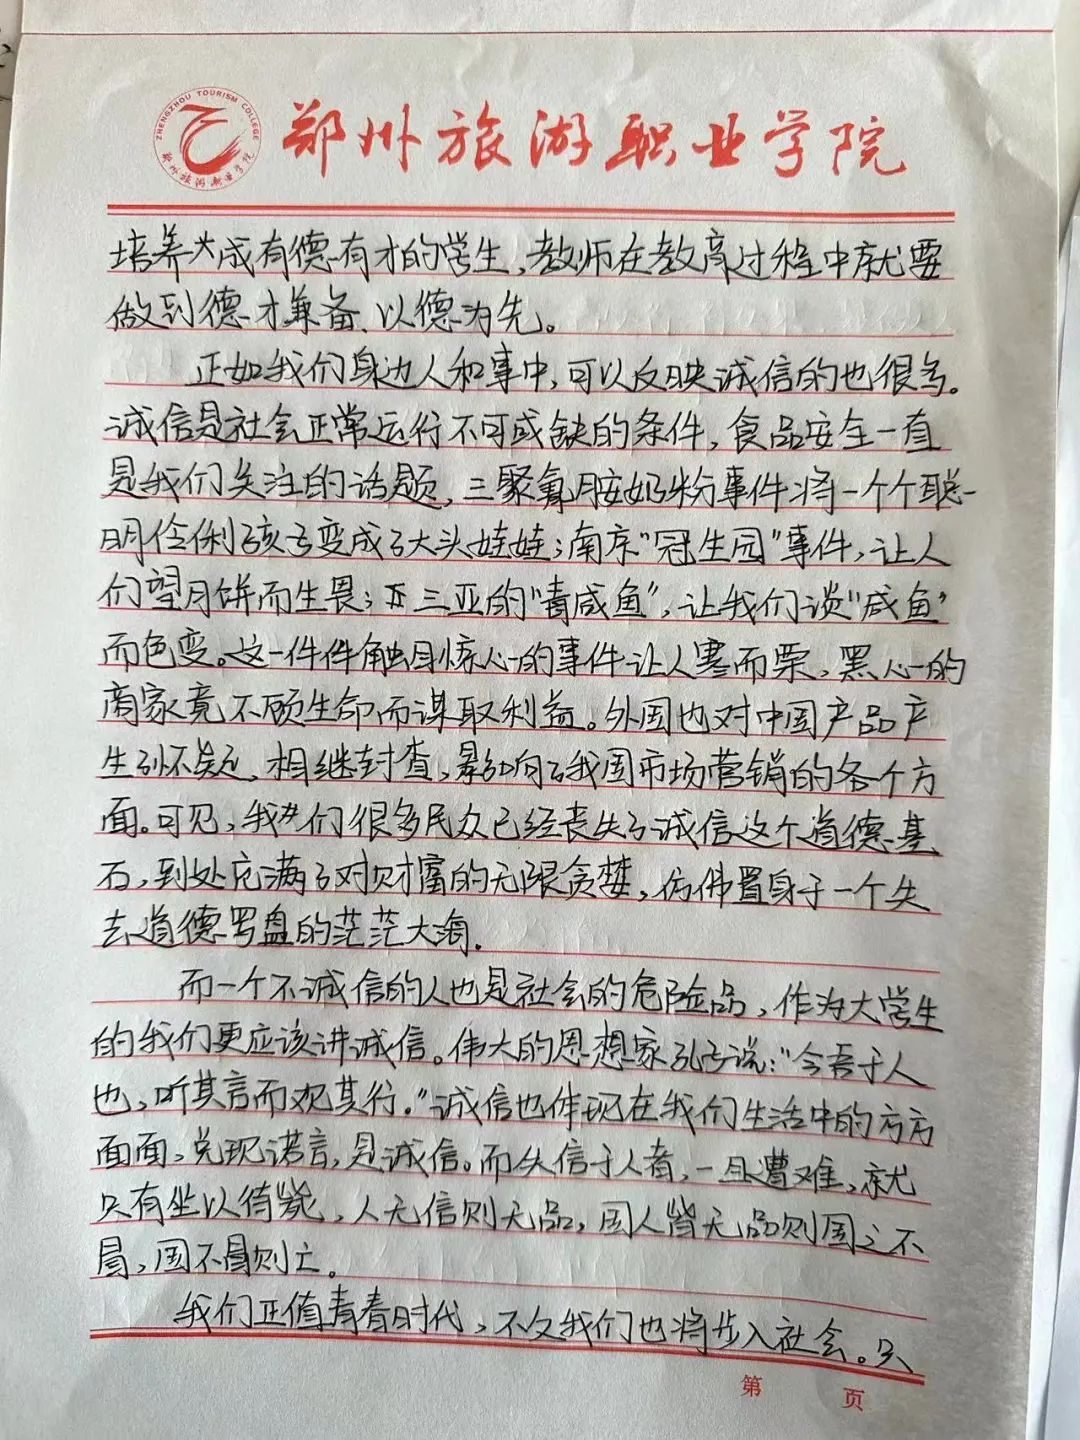 ZHENGZHOU TOURISM COLLEGE
郑州旅游职业学院
郑州旅游职业学院
培养成有德有才的学生,教师在教育过程中就要
做到德才兼备、以德为先。
正如我们身边人和事中,可以反映诚信的也很多。
诚信是社会正常运行不可或缺的条件,食品安全一直
是我们关注的话题,三聚氰胺奶粉事件将一个个聪
明伶俐孩子变成了大头娃娃;南京“冠生园”事件,让人
们望月饼而生畏;三亚的“毒咸鱼”,让我们谈“咸鱼”
而色变。这一件件触目惊心的事件让人寒而栗,黑心的
商家竟不顾生命而谋取利益。外国也对中国产品产
生怀疑,相继封查,影响了我国市场营销的各个方
面。可见,我们很多民众已经丧失了诚信这个道德基
石,到处充满了对财富的无限贪婪,仿佛置身于一个失
去道德罗盘的茫茫大海。
而一个不诚信的人也是社会的危险品,作为大学生
的我们更应该讲诚信。伟大的思想家孔子说:“今吾于人
也,听其言而观其行。”诚信也体现在我们生活中的方方
面面,兑现诺言,是诚信。而失信于人者,一旦遭难,就
只有坐以待毙,人无信则无品,国人皆无品则国之不
昌,国不昌则亡。
我们正值青春时代,不久我们也将步入社会。只
第 页